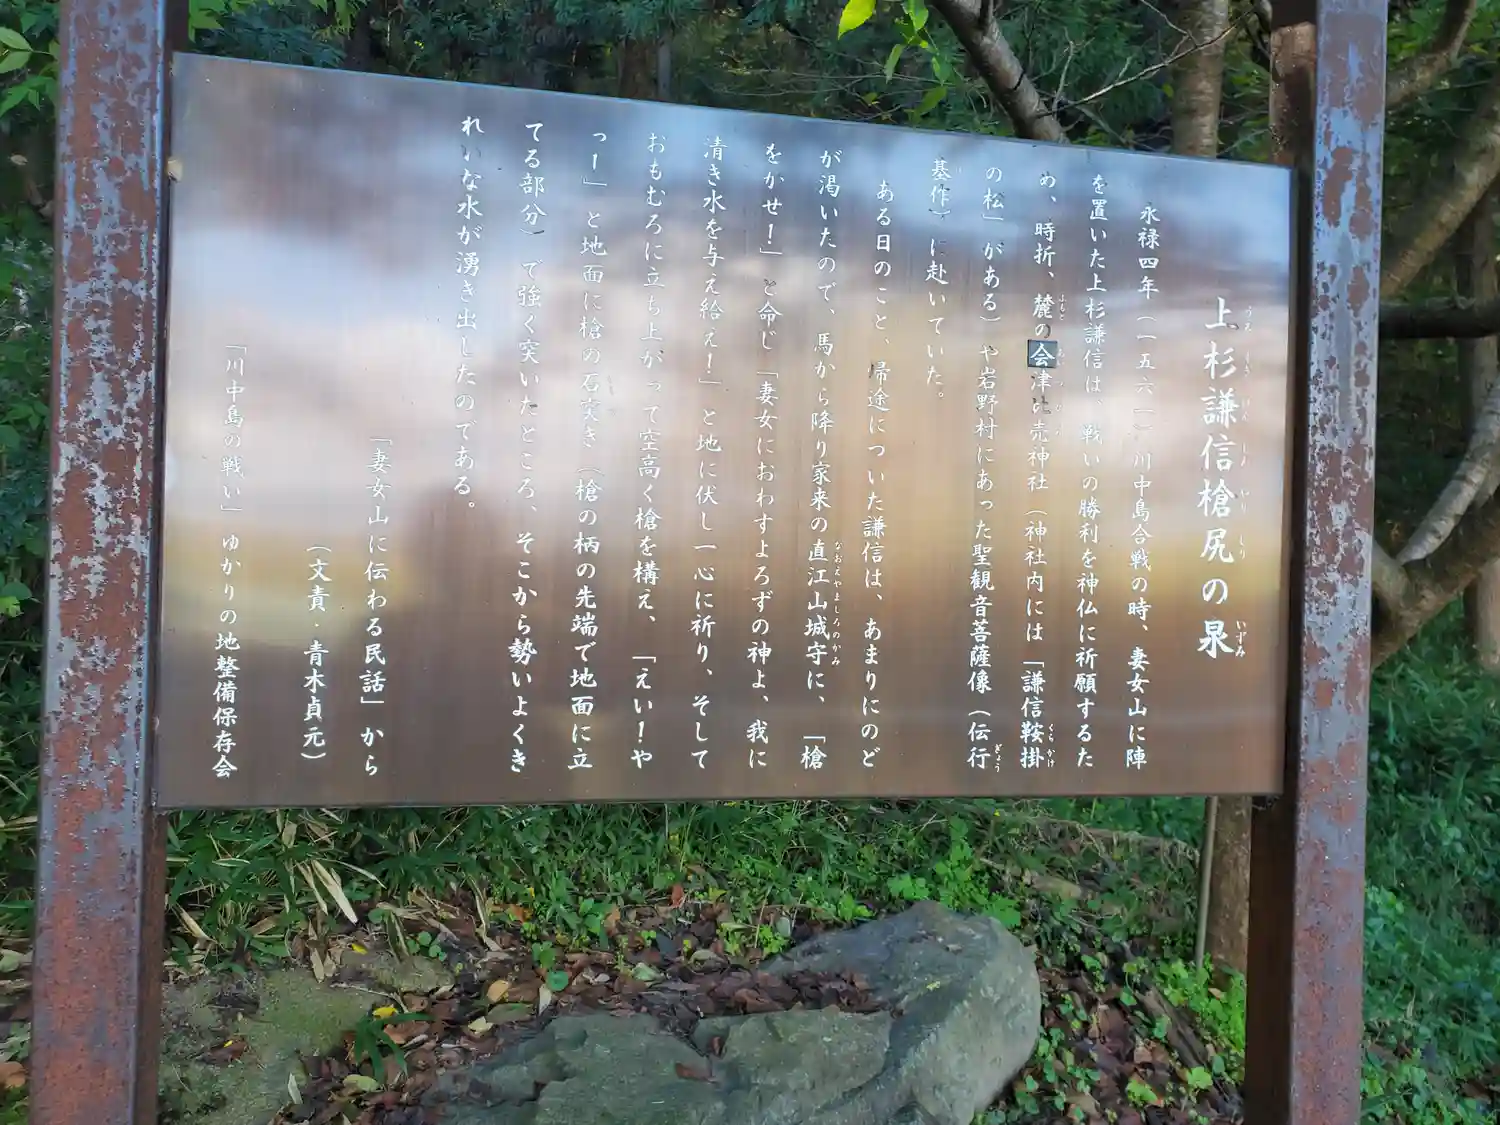 上杉謙信槍尻の泉
永禄四年（一五六一）川中島合戦の時、妻女山に陣
を置いた上杉謙信は、戦いの勝利を神仏に祈願するた
め、時折、麓の会津比売神社（神社内には「謙信鞍掛
の松」がある）や岩野村にあった聖観音菩薩像（伝行
基作）に赴いていた。
ある日のこと、帰途についた謙信は、あまりにのど
が渇いたので、馬から降り家来の直江山城守に、「槍
をかせ！」と命じ「妻女におわすよろずの神よ、我に
清き水を与え給え！」と地に伏し一心に祈り、そして
おもむろに立ち上がって空高く槍を構え、「えい！や
っー」と地面に槍の石突き（槍の柄の先端で地面に立
てる部分）で強く突いたところ、そこから勢いよくき
れいな水が湧き出したのである。
「妻女山に伝わる民話」から
（文責・青木貞元）
「川中島の戦い」ゆかりの地整備保存会